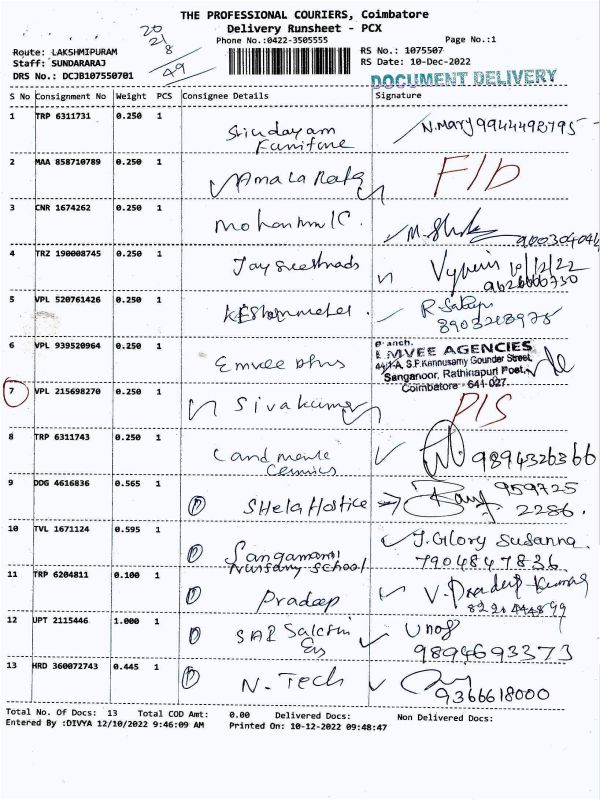 THE PROFESSIONAL COURIERS, Coimbatore
Delivery Runsheet - PCX
Phone No.:0422-3505555
Page No.:1
Route: LAKSHMIPURAM
Staff: SUNDARARAJ
DRS No.: DCJB107550701
20
21
8
49
RS No.: 1075507
RS Date: 10-Dec-2022
DOCUMENT DELIVERY
S No Consignment No Weight PCS Consignee Details Signature
1 TRP 6311731 0.250 1 N.Mary 9944498795
2 MAA 858710789 0.250 1 Amala F/D
3 CNR 1674262 0.250 1
4 TRZ 190008745 0.250 1 10/12/22
5 VPL 520761426 0.250 1
6 VPL 939520964 0.250 1 Emvee
Branch.
EMVEE AGENCIES
S.P.Kannusamy Gounder Street,
Sanganoor, Rathinapuri Post,
Coimbatore - 641 027.
7 VPL 215698270 0.250 1 Sivakumar P/S
8 TRP 6311743 0.250 1 9894326366
9 DDG 4616836 0.565 1 959725
2286.
10 TVL 1671124 0.595 1 J.Glory Susanna
Nursary school 7904847836
11 TRP 6204811 0.100 1 Pradeep V. Pradeep Kumar
12 UPT 2115446 1.000 1 9894693373
13 HRD 360072743 0.445 1 N. Tech 9366618000
Total No. Of Docs: 13 Total COD Amt: 0.00 Delivered Docs: Non Delivered Docs:
Entered By :DIVYA 12/10/2022 9:46:09 AM Printed On: 10-12-2022 09:48:47